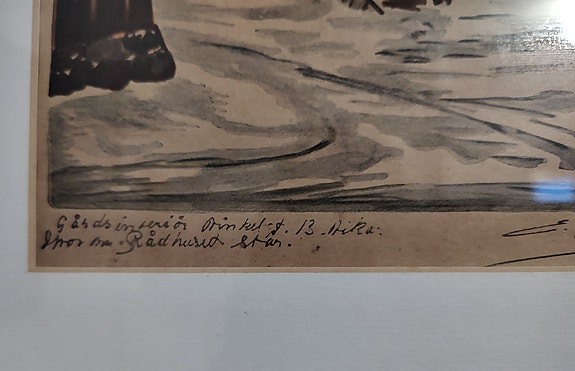 Gårdsinteriör Vinkel-g. 13. Vika.
Hvor nu Rådhuset står.
E.